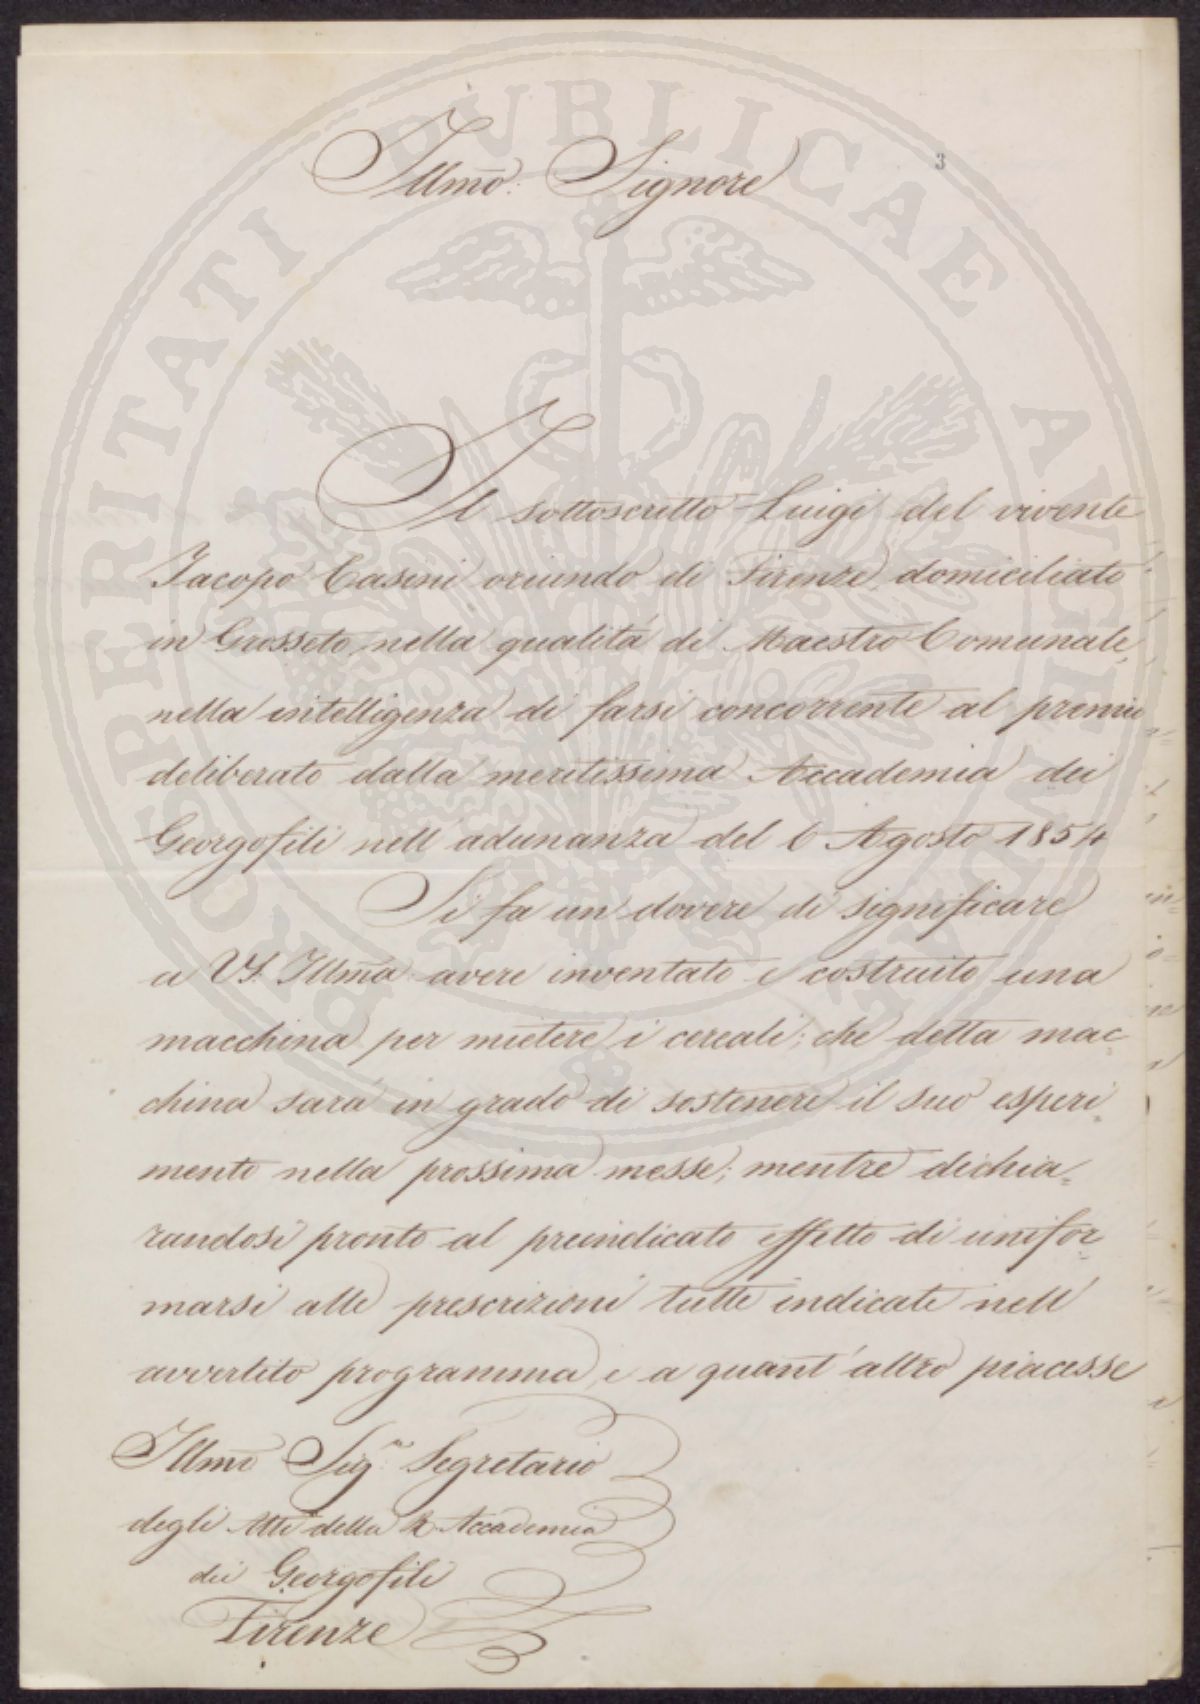 3
Illmo. Signore
Il sottoscritto Luigi del vivente
Jacopo Casini oriundo di Firenze, domiciliato
in Grosseto, nella qualità di Maestro Comunale,
nella intelligenza di farsi concorrente al premio
deliberato dalla meritissima Accademia dei
Georgofili nell'adunanza del 6 Agosto 1854
Si fa un dovere di significare
a VS. Illma avere inventato e costruito una
macchina per mietere i cereali; che detta mac=
china sarà in grado di sostenere il suo esperi=
mento nella prossima messe; mentre dichia=
randosi pronto al preindicato effetto di unifor=
marsi alle prescrizioni tutte indicate nell'
avvertito programma, e a quant'altro piacesse
Illmo Sigre Segretario
degli Atti della R. Accademia
dei Georgofili
Firenze
PROSPERITATI PUBLICAE AUGENDAE